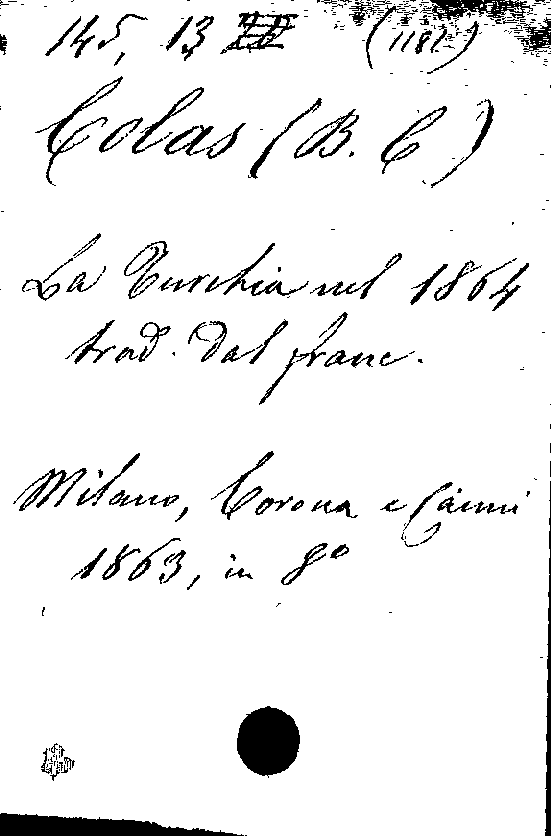 145, 13 (1182)
Colas (B. C)
La Turchia nel 1864
trad. dal franc.
Milano, Corona e Caimi
1863, in 8º